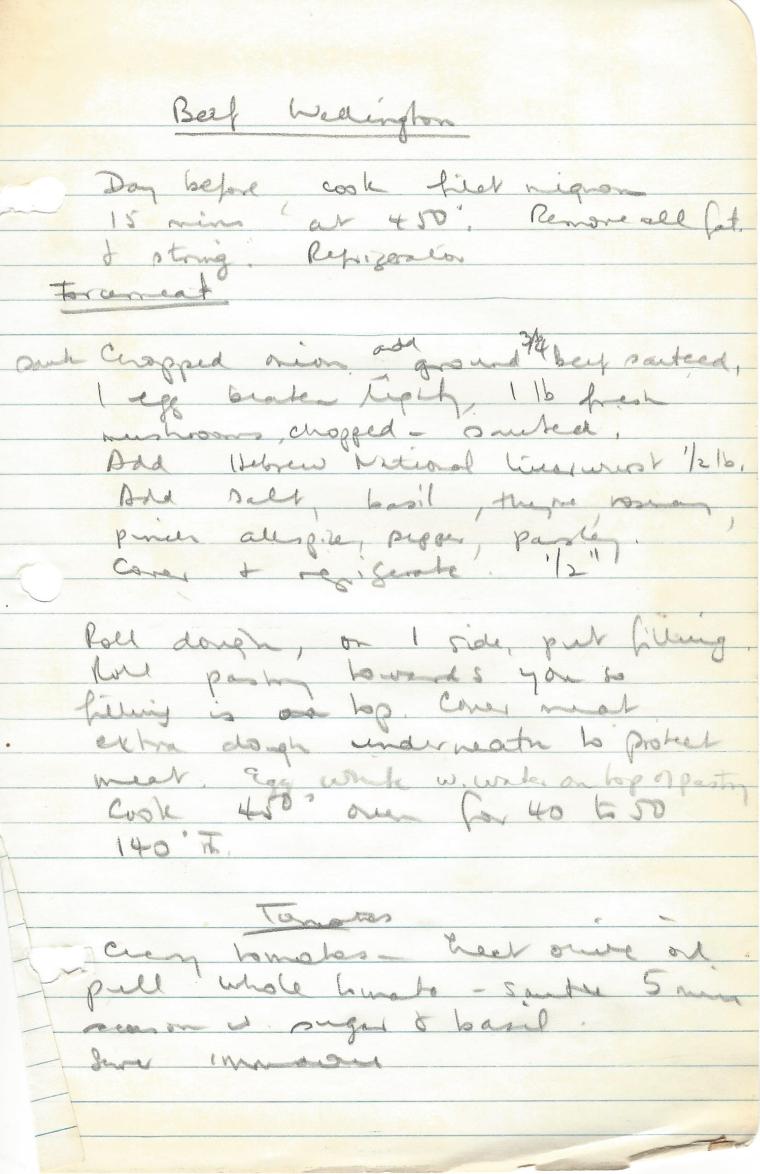 Beef Wellington
Day before cook filet mignon
15 mins at 450°. Remove all fat
& string. Refrigerator
Forcemeat
Saute Chopped onion add ground 3/4 beef sauteed,
1 egg beaten lightly, 1 lb fresh
mushrooms, chopped - sauteed.
Add Hebrew National liverwurst 1/2 lb.
Add salt, basil, thyme, rosemary,
pinch allspice, pepper, parsley.
Cover & refrigerate 1/2"
Roll dough, on 1 side, put filling.
Roll pastry towards you so
filling is on top. Cover meat
extra dough underneath to protect
meat. Egg white w. water on top of pastry
Cook 450° oven for 40 to 50
140° Th.
Tomatoes
Cherry tomatoes - heat olive oil
whole tomato - saute 5 min
season w. sugar & basil.
Serve